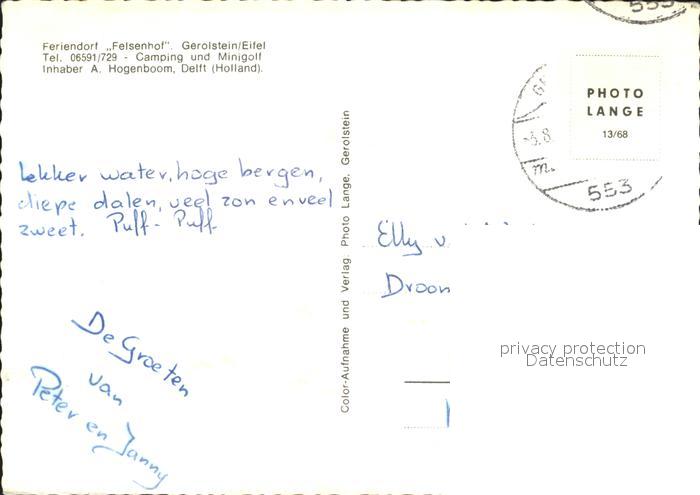 Feriendorf „Felsenhof". Gerolstein/Eifel
Tel. 06591/729 - Camping und Minigolf
Inhaber A. Hogenboom, Delft (Holland).
lekker water, hoge bergen,
diepe dalen, veel zon en veel
zweet. Puff - Puff.
De Groeten
van
Peter en Janny
Color-Aufnahme und Verlag: Photo Lange, Gerolstein
553
PHOTO
LANGE
13/68
553
Elly v
Droon
privacy protection
Datenschutz